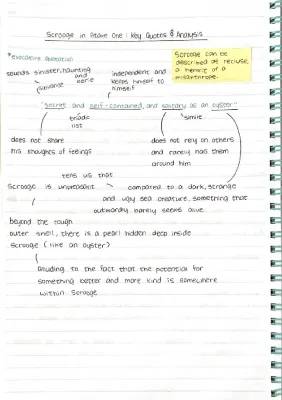 Scrooge in Stave One : Key Quotes & Analysis
Scrooge can be
described as recluse,
a hermit or a
misanthrope.
sounds sinister, haunting
and eerie
strange
independent and
keeps himself to
himself
"secret and self-contained, and solitary as an oyster"
triadic
list
simile
does not share
his thoughts or feelings
does not rely on others
and rarely has them
around him
tells us that
Scrooge is unpleasant
compared to a dark, strange
and ugly sea creature, something that
outwardly barely seems alive
beyond the tough
outer shell, there is a pearl hidden deep inside
Scrooge (like an oyster)
alluding to the fact that the potential for
something better and more kind is somewhere
within Scrooge